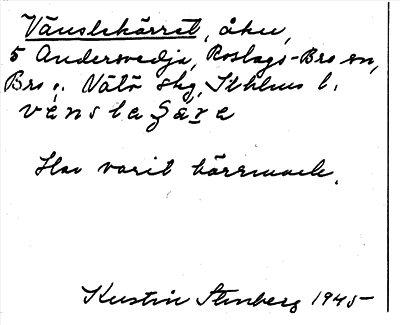 Vänslekärret, åker,
5 Andersvedja, Roslags-Bro sn,
Bro o. Vätö skg, Sthlms l.
Har varit kärrmark.
Kerstin Stenberg 1945